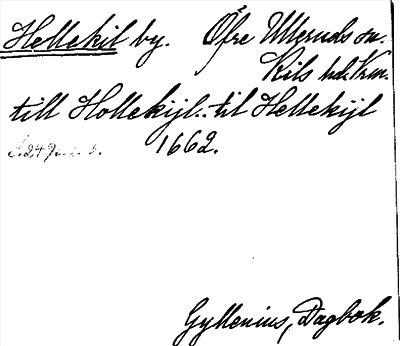 Hellekil by. Öfre Ulleruds sn.
Kils hd. Vrm.
till Hollekijl.. til Hellekijl
1662.
Gyllenius, Dagbok.